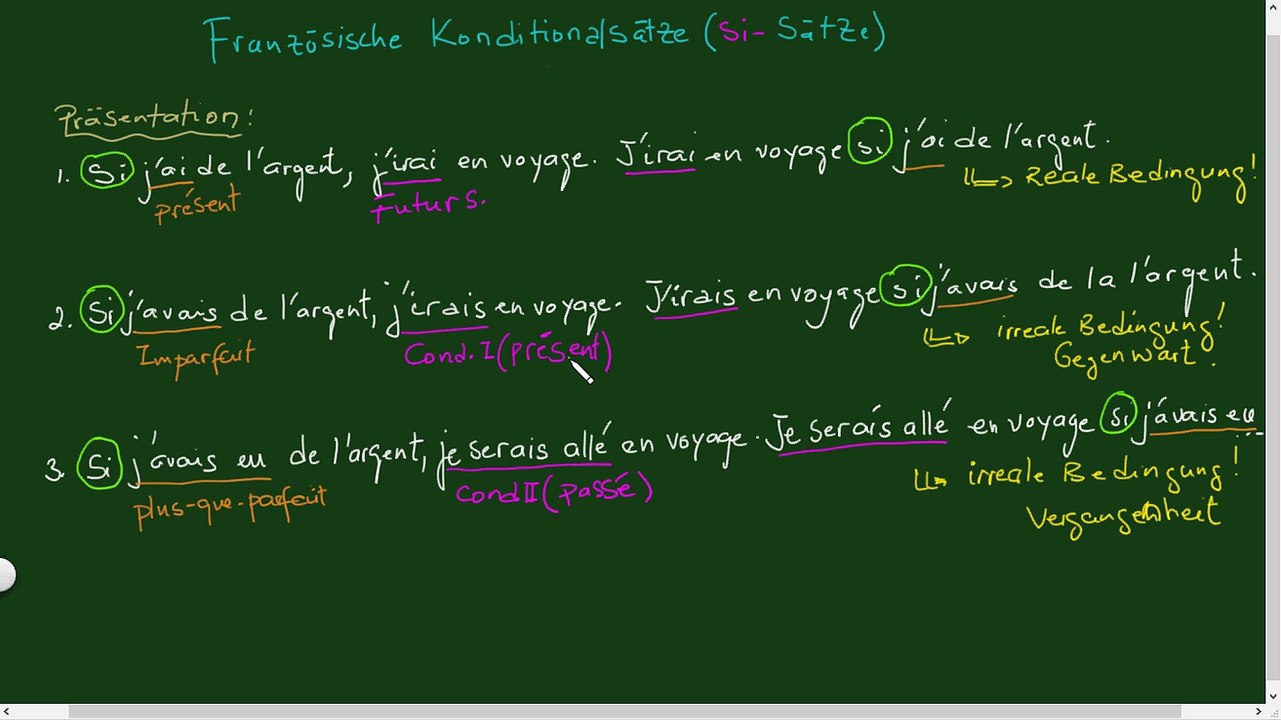 Französische Konditionalsätze (Si-Sätze)
Präsentation:
1. Si j'ai de l'argent, j'irai en voyage. J'irai en voyage si j'ai de l'argent.
présent Futur S. Reale Bedingung!
2. Si j'avais de l'argent, j'irais en voyage. J'irais en voyage si j'avais de la l'argent.
Imparfait Cond. I (présent) irreale Bedingung!
Gegenwart.
3. Si j'avais eu de l'argent, je serais allé en voyage. Je serais allé en voyage si j'avais eu ...
plus-que-parfait Cond II (passé) irreale Bedingung!
Vergangenheit